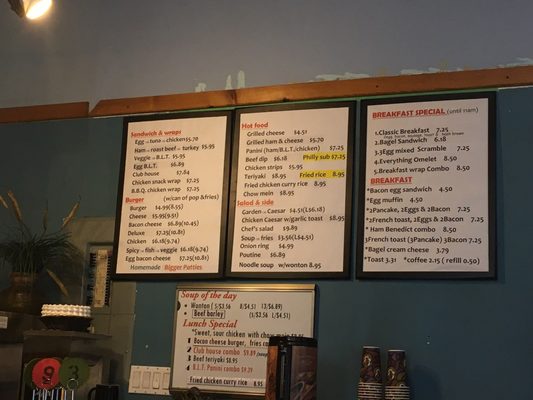 Sandwich & wraps
Egg — tuna — chicken $5.70
Ham — roast beef — turkey $5.95
Veggie — B.L.T. $5.95
Egg B.L.T. $6.89
Club house $7.84
Chicken snack wrap $7.25
B.B.Q. chicken wrap $7.25
Burger (w/can of pop &fries)
Burger $4.99(8.55)
Cheese $5.95(9.51)
Bacon cheese $6.89(10.45)
Deluxe $7.25(10.81)
Chicken $6.18(9.74)
Spicy — fish — veggie $6.18(9.74)
Egg bacon cheese $7.25(10.81)
Homemade Bigger Patties
Hot food
Grilled cheese $4.51
Grilled ham & cheese $5.70
Panini (ham/B.L.T./chicken) $7.25
Beef dip $6.18 Philly sub $7.25
Chicken strips $5.95
Teriyaki $8.95 Fried rice 8.95
Fried chicken curry rice 8.95
Chow mein $8.95
Salad & side
Garden — Caesar $4.51(L$6.18)
Chicken Caesar w/garlic toast $8.95
Chef's salad $9.89
Soup — fries $3.56(L$4.51)
Onion ring $4.99
Poutine $6.89
Noodle soup w/wonton 8.95
BREAKFAST SPECIAL (until 11am)
1.Classic Breakfast 7.25
2.Bagel Sandwich 6.18
3.3Egg mixed Scramble 7.25
4.Everything Omelet 8.50
5.Breakfast wrap Combo 8.50
BREAKFAST
*Bacon egg sandwich 4.50
*Egg muffin 4.50
*2Pancake, 2Eggs & 2Bacon 7.25
*2French toast, 2Eggs & 2Bacon 7.25
*Ham Benedict combo 8.50
*3French toast (3Pancake) 3Bacon 7.25
*Bagel cream cheese 3.79
*Toast 3.31 *coffee 2.15 ( refill 0.50)
Soup of the day
Wonton ( S/$3.56 8/$4.51 13/$6.89)
Beef barley (S/$3.56 L/$4.51)
Lunch Special
*Sweet, sour chicken with chow mein
1 Bacon cheese burger, fries
2 Club house combo $9.89
3 Beef teriyaki $8.95
4 B.L.T. Panini combo $9.29
Fried chicken curry rice 8.95
93